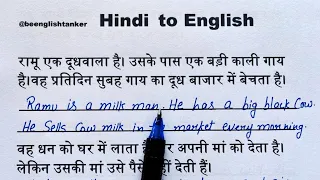 @beenglishtanker
Hindi to English
रामू एक दूधवाला है। उसके पास एक बड़ी काली गाय
है।वह प्रतिदिन सुबह गाय का दूध बाजार में बेचता है।
Ramu is a milk man. He has a big black Cow.
He Sells Cow milk in market every morning.
वह धन को घर में लाता है अपनी मां को देता है।
लेकिन उसकी मां उसे पैसे देती हैं।